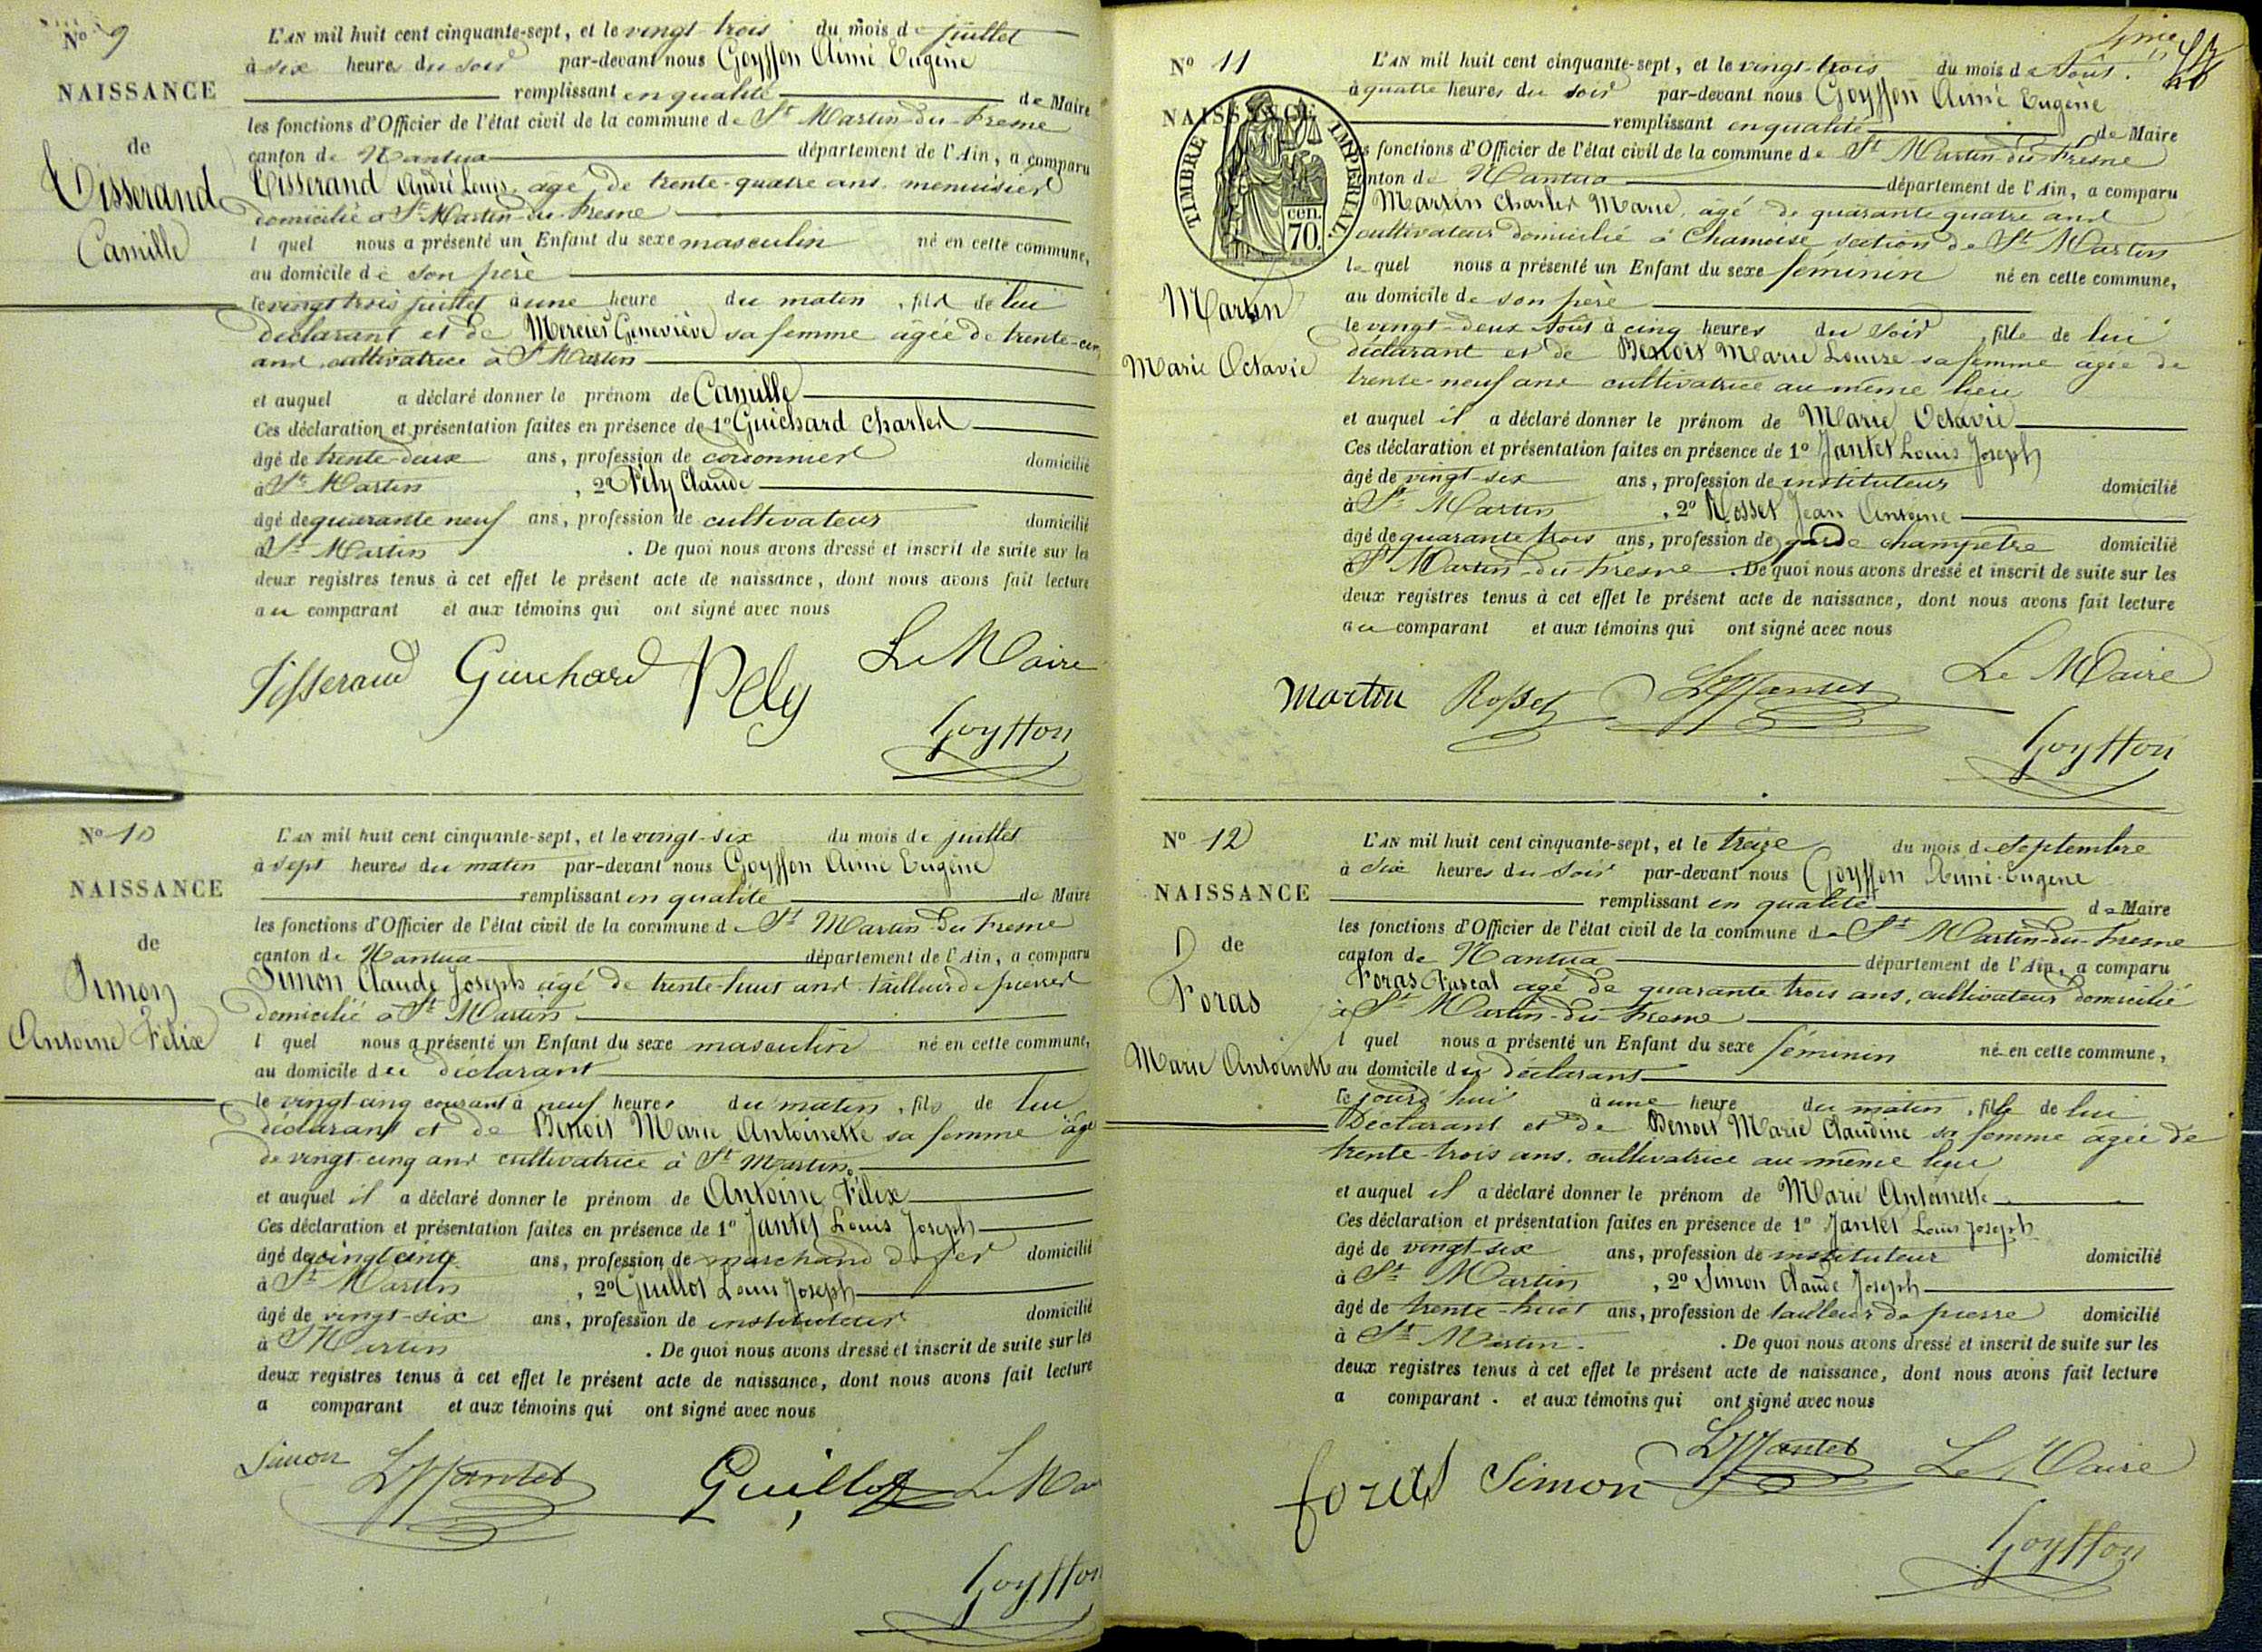 N° 9
NAISSANCE
de
Tisserand
Camille
L'AN mil huit cent cinquante-sept, et le vingt-trois du mois de juillet
à six heures du soir par-devant nous Goyffon Aimé Eugène
remplissant en qualité de Maire
les fonctions d'Officier de l'état civil de la commune de St Martin-du-Fresne
canton de Nantua département de l'Ain, a comparu
Tisserand André Louis, agé de trente-quatre ans, menuisier
domicilié à St Martin-du-Fresne
l quel nous a présenté un Enfant du sexe masculin né en cette commune,
au domicile de son père
le vingt trois juillet à une heure du matin, fils de lui
déclarant et de Mercier Geneviève sa femme âgée de trente-cinq
ans cultivatrice à St Martin
et auquel a déclaré donner le prénom de Camille
Ces déclaration et présentation faites en présence de 1° Guichard Charles
âgé de trente-deux ans, profession de cordonnier domicilié
à St Martin, 2° Pély Claude
âgé de quarante neuf ans, profession de cultivateur domicilié
à St Martin. De quoi nous avons dressé et inscrit de suite sur les
deux registres tenus à cet effet le présent acte de naissance, dont nous avons fait lecture
au comparant et aux témoins qui ont signé avec nous
Tisserand Guichard Pely Le Maire
Goyffon
N° 10
NAISSANCE
de
Simon
Antoine Félix
L'AN mil huit cent cinquante-sept, et le vingt-six du mois de juillet
à sept heures du matin par-devant nous Goyffon Aimé Eugène
remplissant en qualité de Maire
les fonctions d'Officier de l'état civil de la commune de St Martin-du-Fresne
canton de Nantua département de l'Ain, a comparu
Simon Claude Joseph agé de trente-huit ans tailleur de pierres
domicilié à St Martin
l quel nous a présenté un Enfant du sexe masculin né en cette commune,
au domicile du déclarant
le vingt-cinq courant à neuf heures du matin, fils de lui
déclarant et de Benoit Marie Antoinette sa femme âgée
de vingt-cinq ans cultivatrice à St Martin.
et auquel il a déclaré donner le prénom de Antoine Félix
Ces déclaration et présentation faites en présence de 1° Jantet Louis Joseph
âgé de vingt cinq ans, profession de marchand de fer domicilié
à St Martin, 2° Guillot Louis Joseph
âgé de vingt-six ans, profession de instituteur domicilié
à St Martin. De quoi nous avons dressé et inscrit de suite sur les
deux registres tenus à cet effet le présent acte de naissance, dont nous avons fait lecture
a comparant et aux témoins qui ont signé avec nous
Simon LJJantet Guillot Le Mai
Goyffon
N° 11
NAISSANCE
TIMBRE IMPERIAL
70 cen.
Martin
Marie Octavie
L'AN mil huit cent cinquante-sept, et le vingt-trois du mois de Août.
à quatre heures du soir par-devant nous Goyffon Aimé Eugène
remplissant en qualité de Maire
s fonctions d'Officier de l'état civil de la commune de St Martin-du-Fresne
nton de Nantua département de l'Ain, a comparu
Martin Charles Marie, âgé de quarante quatre ans
cultivateur domicilié à Chamoise section de St Martin
le quel nous a présenté un Enfant du sexe féminin né en cette commune,
au domicile de son père
le vingt-deux Août à cinq heures du soir, fille de lui
déclarant et de Benoit Marie Louise sa femme agée de
trente-neuf ans cultivatrice au même lieu
et auquel il a déclaré donner le prénom de Marie Octavie
Ces déclaration et présentation faites en présence de 1° Jantet Louis Joseph
âgé de vingt-six ans, profession de instituteur domicilié
à St Martin, 2° Rosset Jean Antoine
âgé de quarante trois ans, profession de garde champêtre domicilié
à St Martin-du-Fresne. De quoi nous avons dressé et inscrit de suite sur les
deux registres tenus à cet effet le présent acte de naissance, dont nous avons fait lecture
au comparant et aux témoins qui ont signé avec nous
Martin Rosset LJJantet Le Maire
Goyffon
N° 12
NAISSANCE
de
Foras
Marie Antoinette
L'AN mil huit cent cinquante-sept, et le treize du mois de Septembre
à six heures du soir par-devant nous Goyffon Aimé-Eugène
remplissant en qualité de Maire
les fonctions d'Officier de l'état civil de la commune de St Martin-du-Fresne
canton de Nantua département de l'Ain, a comparu
Foras Pascal agé de quarante trois ans, cultivateur domicilié
à St Martin-du-Fresne
l quel nous a présenté un Enfant du sexe féminin né en cette commune,
au domicile du déclarant
le jourd'hui à une heure du matin, fille de lui
Déclarant et de Benoit Marie Claudine sa femme agée de
trente-trois ans, cultivatrice au même lieu
et auquel il a déclaré donner le prénom de Marie Antoinette
Ces déclaration et présentation faites en présence de 1° Jantet Louis Joseph
âgé de vingt-six ans, profession de instituteur domicilié
à St Martin, 2° Simon Claude Joseph
âgé de trente-huit ans, profession de tailleur de pierre domicilié
à St Martin. De quoi nous avons dressé et inscrit de suite sur les
deux registres tenus à cet effet le présent acte de naissance, dont nous avons fait lecture
a comparant. et aux témoins qui ont signé avec nous
foras Simon LJJantet Le Maire
Goyffon